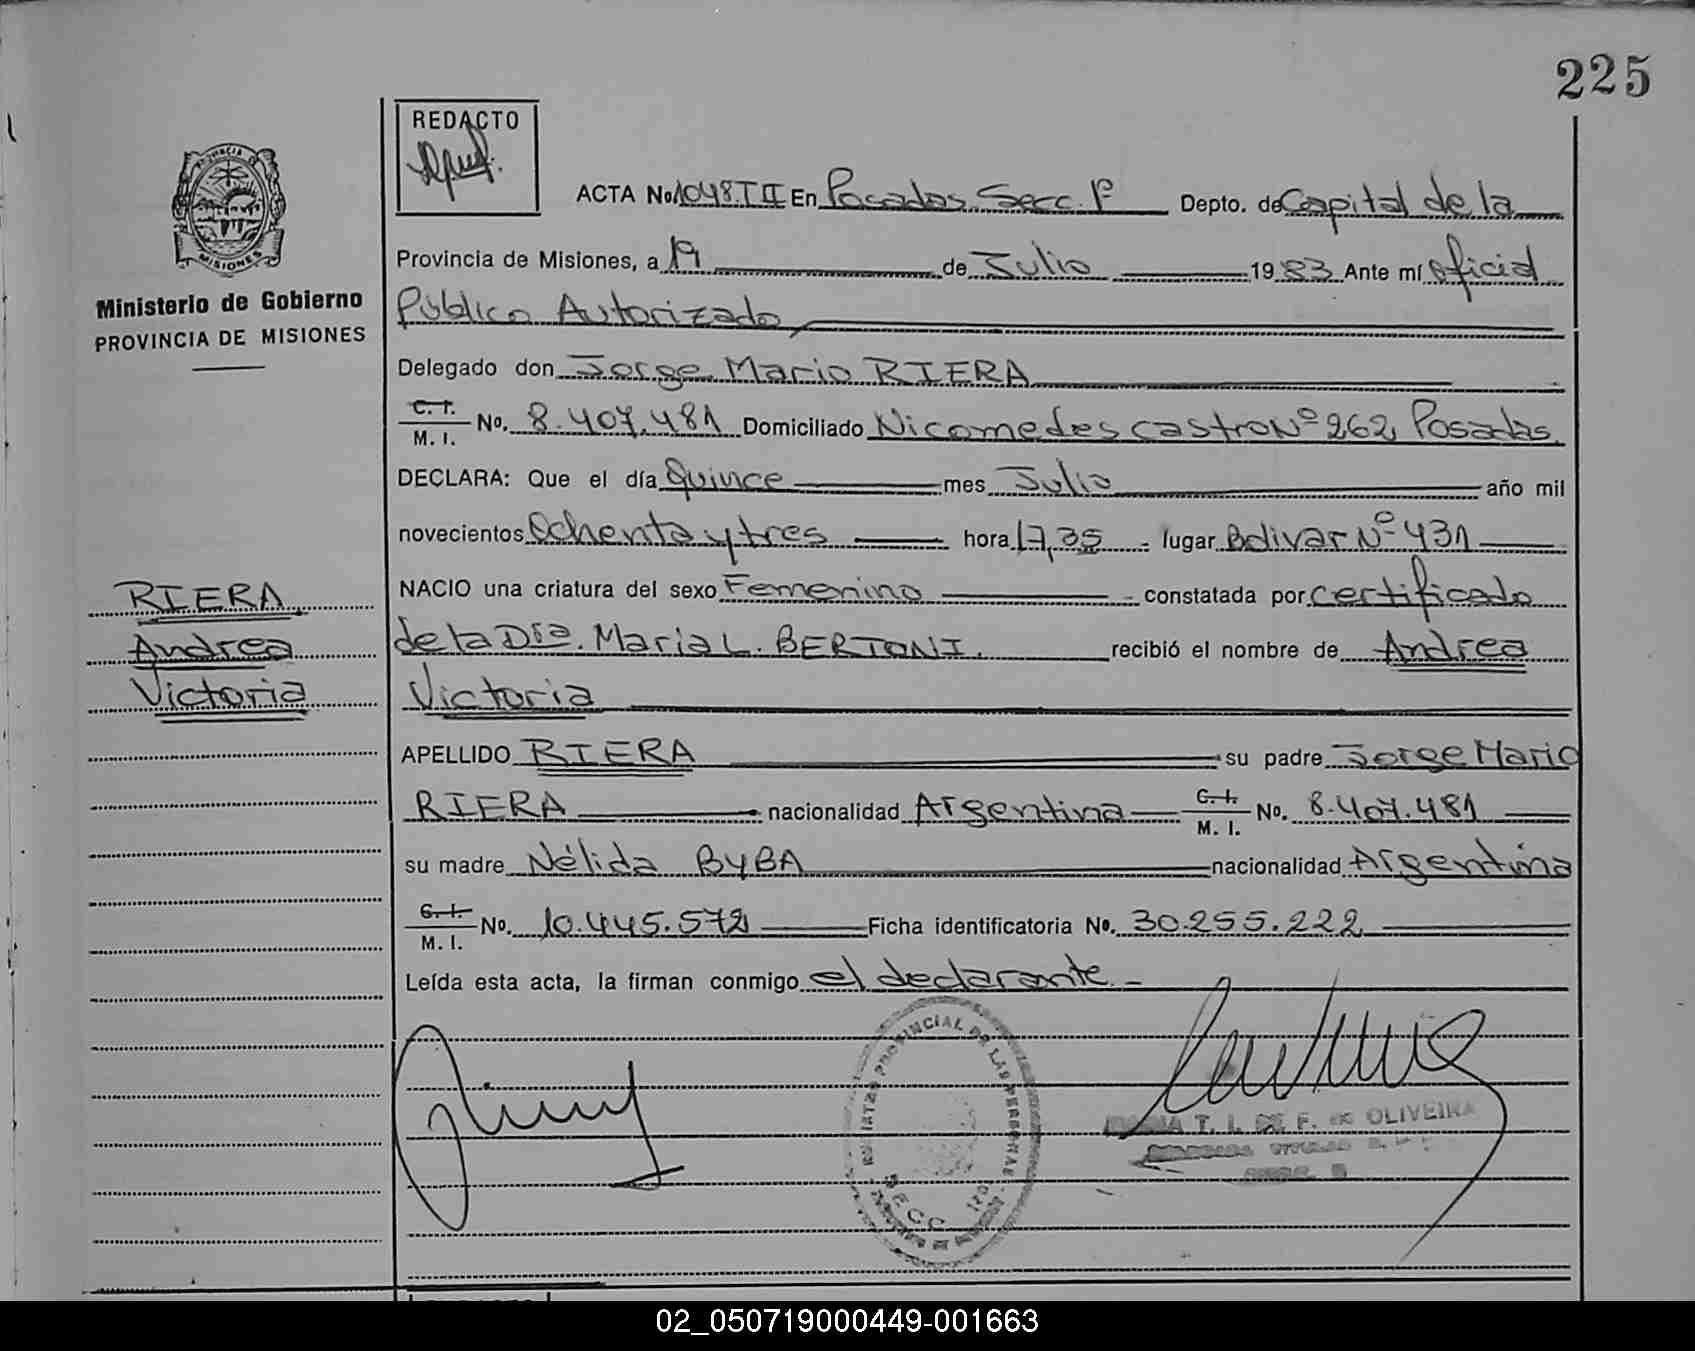 225
REDACTO
ACTA No. 1048.TII En Posadas Secc. 1ª Depto. de Capital de la
Provincia de Misiones, a 19 de Julio 1983 Ante mí oficial
Público Autorizado,
Delegado don Jorge Mario RIERA
C. I. M. I. No. 8.407.481 Domiciliado Nicomedes Castro Nº 262, Posadas.
DECLARA: Que el día Quince mes Julio año mil
novecientos Ochenta y tres hora 17,35 lugar Bolivar Nº 431
NACIO una criatura del sexo Femenino constatada por certificado
de la Dra. Maria L. BERTONI. recibió el nombre de Andrea
Victoria
APELLIDO RIERA su padre Jorge Mario
RIERA nacionalidad Argentina C. I. M. I. No. 8.407.481
su madre Nélida BYBA nacionalidad Argentina
C. I. M. I. No. 10.445.572 Ficha identificatoria No. 30.255.222
Leída esta acta, la firman conmigo el declarante.-
Ministerio de Gobierno
PROVINCIA DE MISIONES
RIERA,
Andrea
Victoria
PROVINCIA DE
MISIONES
PROVINCIAL DE LAS PERSONAS
SECC
T. I. DE F. de OLIVEIRA
02_050719000449-001663